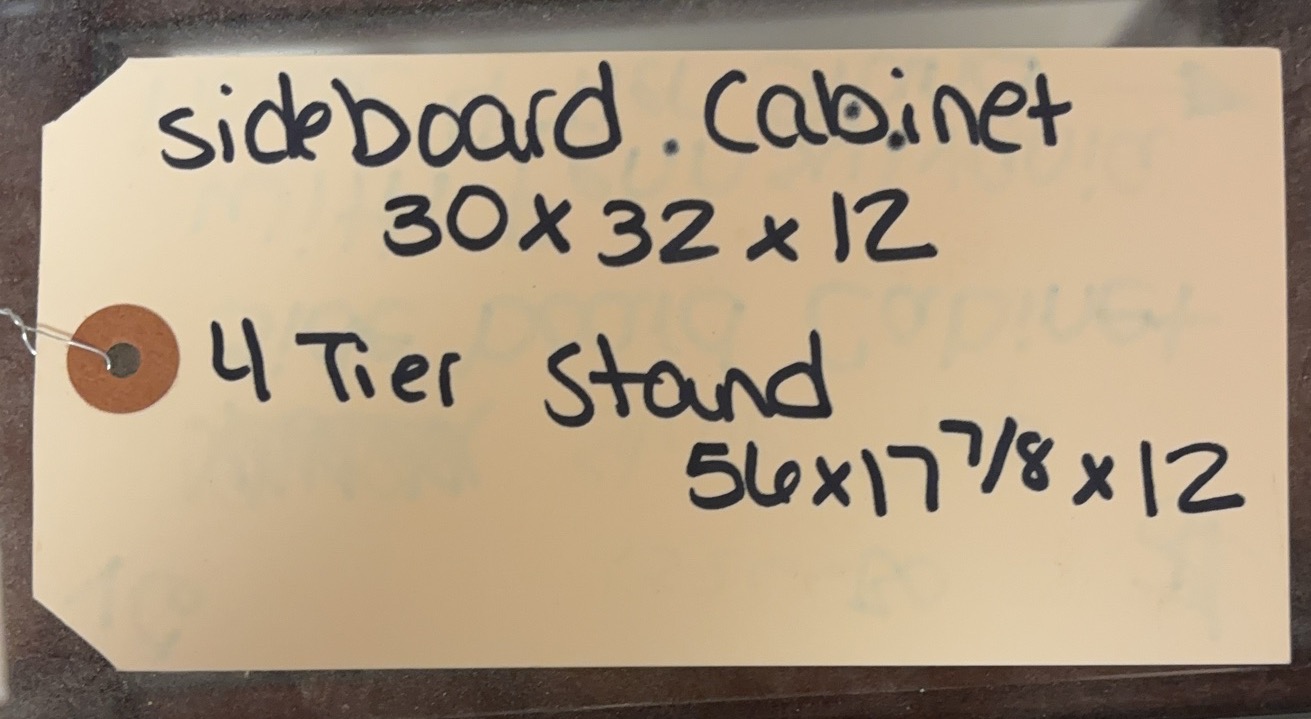 sideboard . Cabinet
30 x 32 x 12
4 Tier Stand
56x17 7/8 x 12